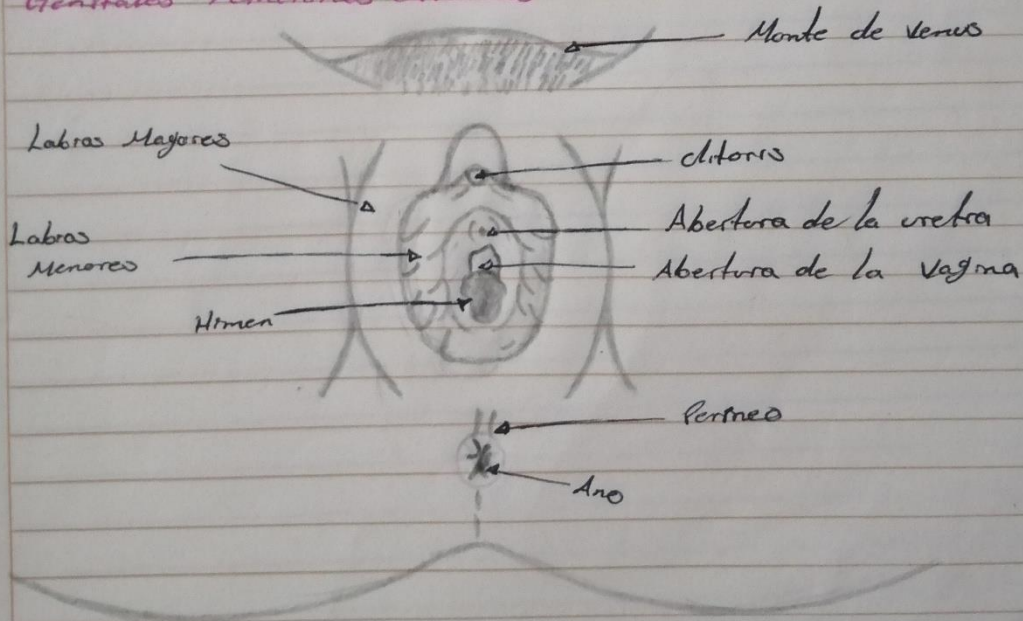 Genitales
Monte de Venus
Labios Mayores
clitoris
Abertura de la uretra
Labios
Menores
Abertura de la Vagina
Himen
Perineo
Ano